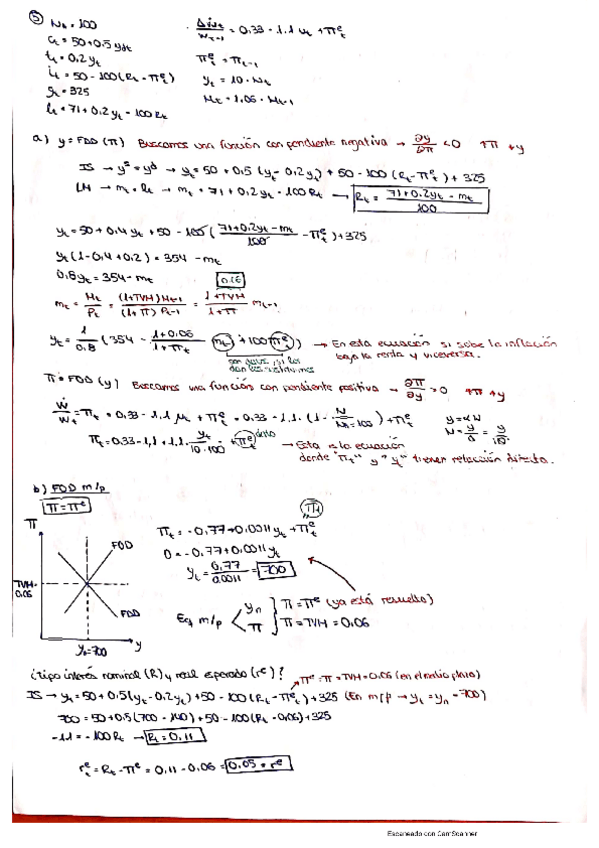 ⑤ N̄s = 100
ΔWt / Wt-1 = 0.33 - 1.1 ut + πᵉt
ct = 50 + 0.5 ydt
tt = 0.2 yt
πᵉt = πt-1
it = 50 - 100 (Rt - πᵉt)
yt = 10 · Nt
gt = 325
Mt = 1.06 · Mt-1
lt = 71 + 0.2 yt - 100 Rt
a) y = FDD (π) Buscamos una función con pendiente negativa → ∂y/∂π < 0 ↑π ↓y
IS → yˢ = yᵈ → yt = 50 + 0.5 (yt - 0.2 yt) + 50 - 100 (Rt - πᵉt) + 325
LM → mt = lt → mt = 71 + 0.2 yt - 100 Rt → Rt = (71 + 0.2 yt - mt) / 100
yt = 50 + 0.4 yt + 50 - 100 ((71 + 0.2 yt - mt) / 100 - πᵉt) + 325
yt (1 - 0.4 + 0.2) = 354 - mt
0.8 yt = 354 - mt
0.06
mt = Mt / Pt = (1+TVM) Mt-1 / (1+π) Pt-1 = (1+TVM) / (1+π) mt-1
yt = 1/0.8 (354 - (1+0.06)/(1+πt) mt + 100 πᵉt) → En esta ecuación si sube la inflación
baja la renta y viceversa.
π = FDD (y) Buscamos una función con pendiente positiva → ∂π/∂y > 0 ↑π ↑y
Ẇ/Wt = πt = 0.33 - 1.1 μt + πᵉt = 0.33 - 1.1 · (1 - N / N̄s=100) + πᵉt
y = αN
N = y/α = y/10
πt = 0.33 - 1.1 + 1.1 · yt / 10·100 + πᵉt dato → Esta es la ecuación
donde "πt" y "yt" tienen relación directa.
b) FDD m/p
π = πᵉ
π
πt = -0.77 + 0.0011 yt + πᵉt
0 = -0.77 + 0.0011 yt
FDD
yt = 0.77 / 0.0011 = 700
TVM=
0.06
Eq m/p
yn } π = πᵉ (ya está resuelto)
π } π = TVM = 0.06
FDD
y
yn = 700
¿tipo interés nominal (R) y real esperado (rᵉ)? πᵉ = π = TVM = 0.06 (en el medio plazo)
IS → yt = 50 + 0.5 (yt - 0.2 yt) + 50 - 100 (Rt - πᵉt) + 325 (En m/p → yt = yn = 700)
700 = 50 + 0.5 (700 - 140) + 50 - 100 (Rt - 0.06) + 325
-11 = -100 Rt → Rt = 0.11
rᵉt = Rt - πᵉ = 0.11 - 0.06 = 0.05 = rᵉ
Escaneado con CamScanner